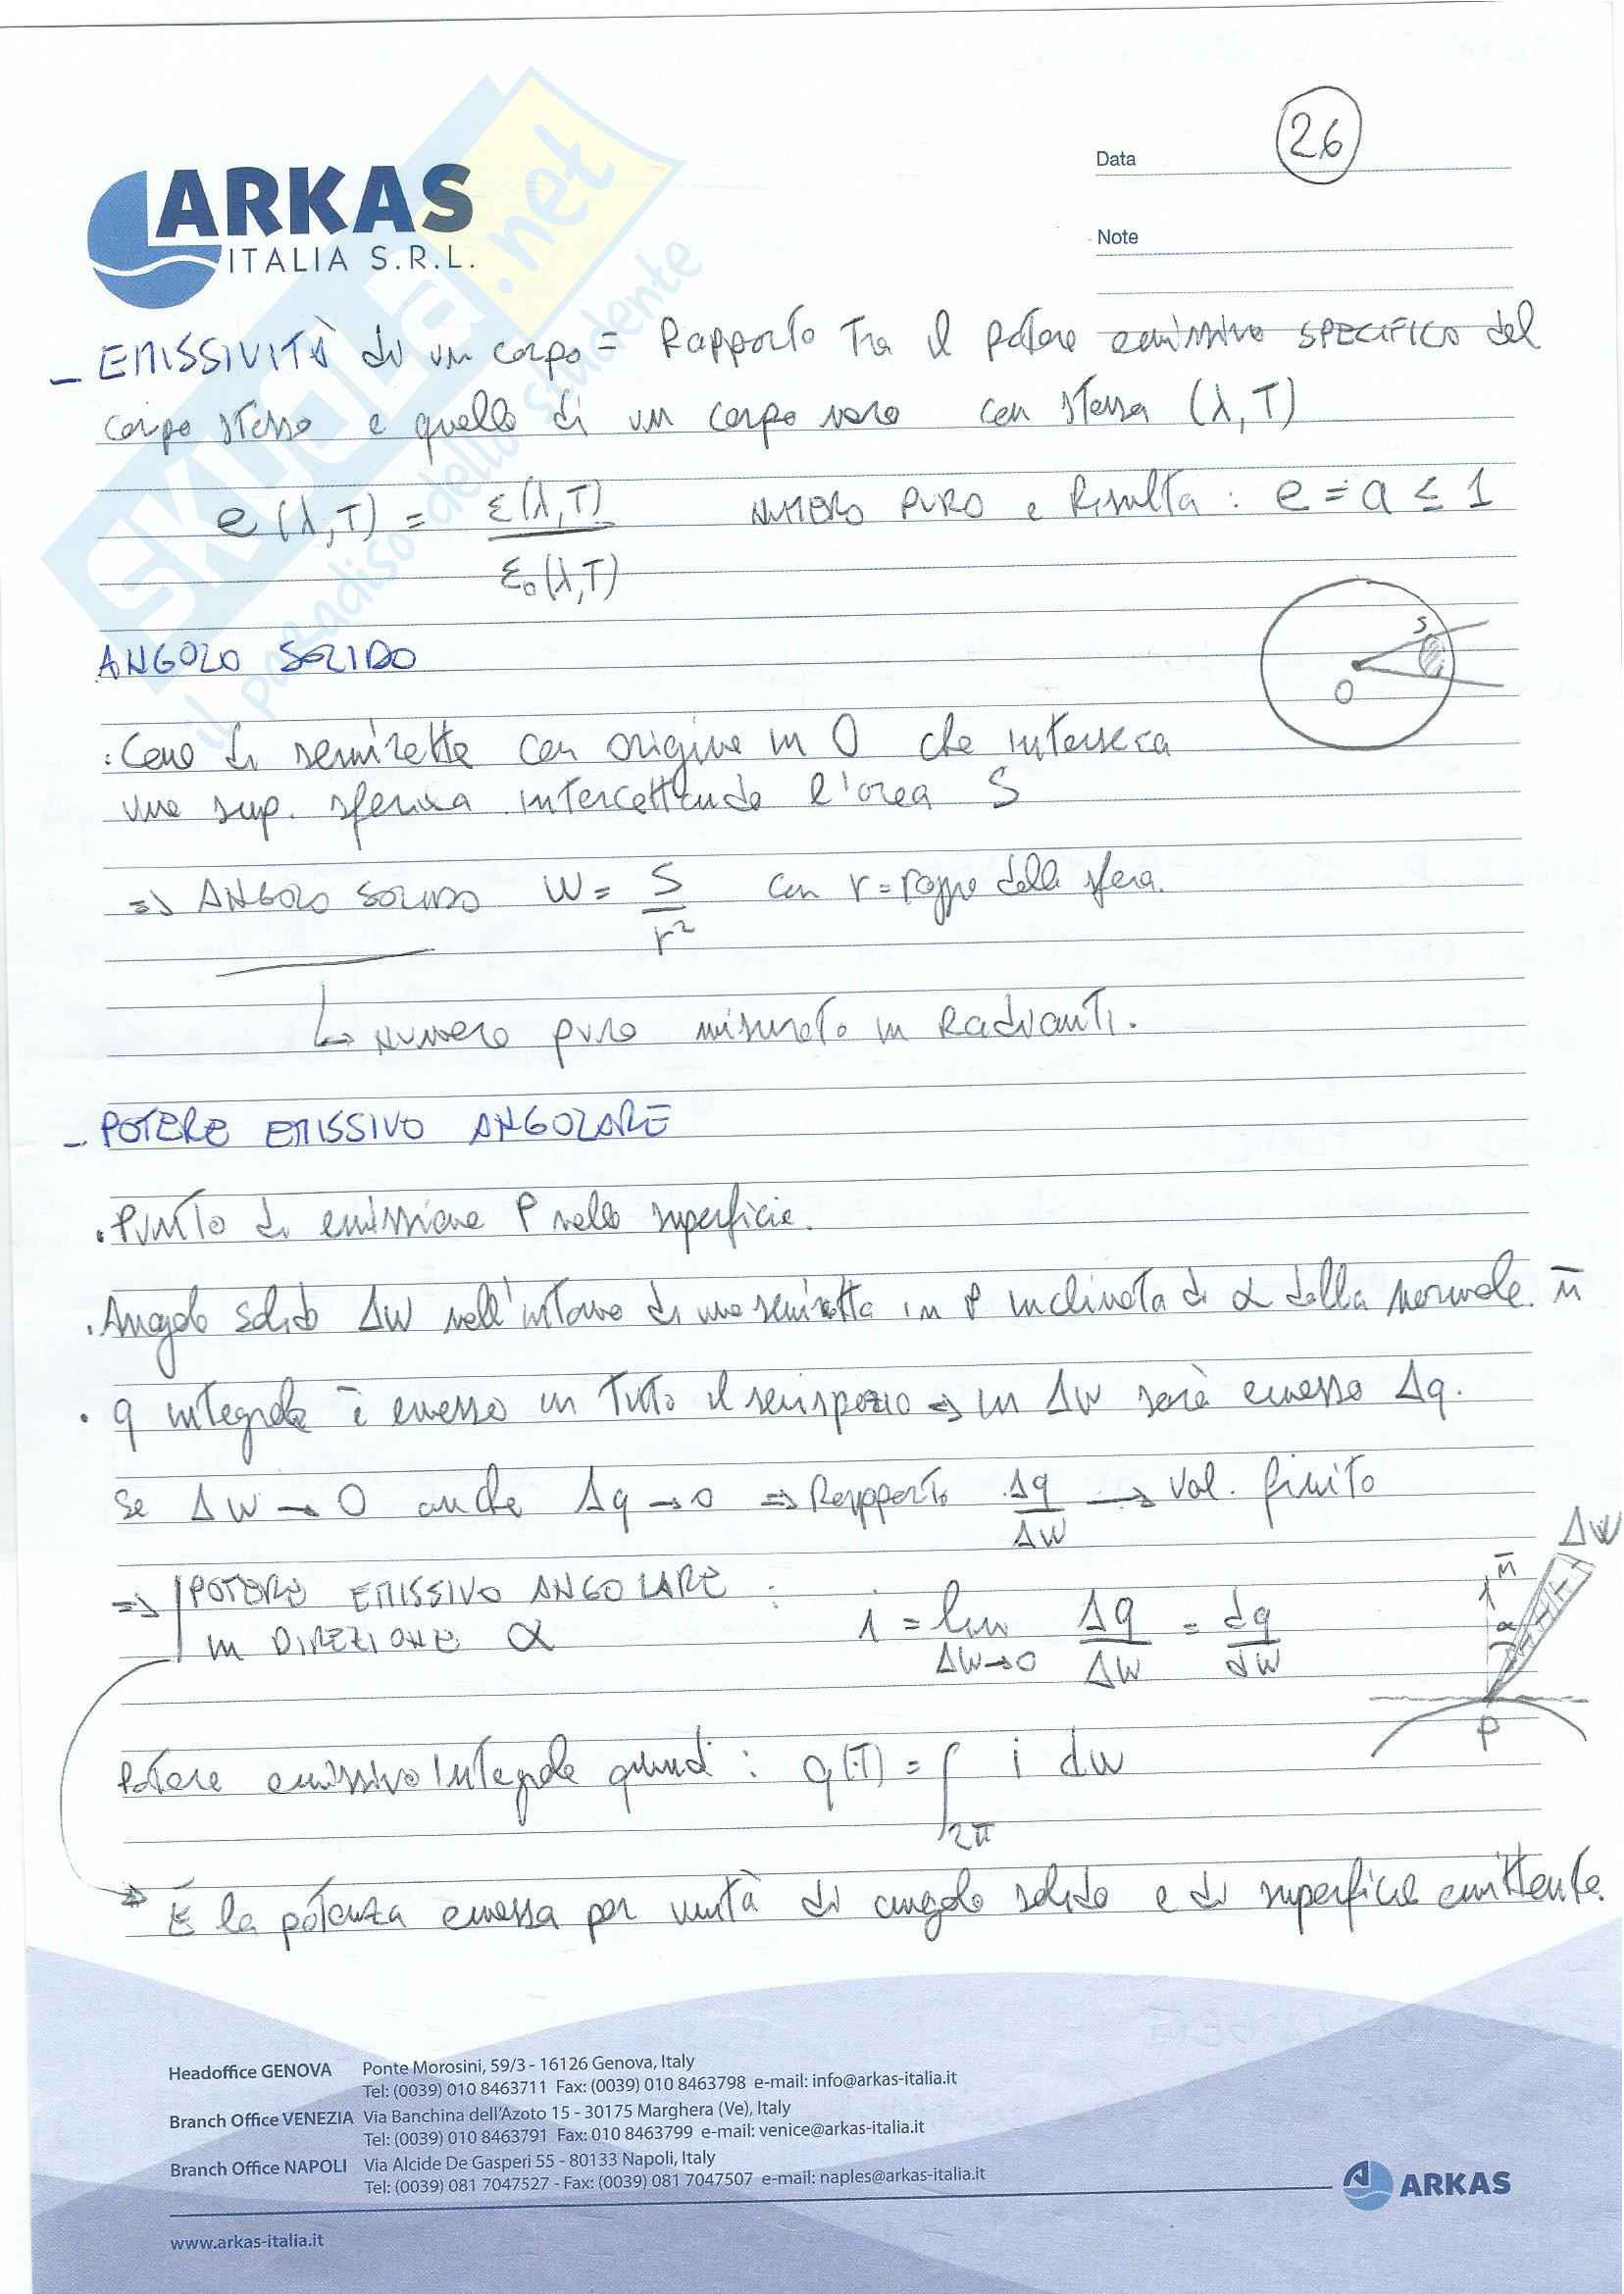 26
Data
Note
ARKAS
ITALIA S.R.L.
SKUOLA.net
il paradiso dello studente
- EMISSIVITÀ di un corpo = Rapporto Tra il Potere emissivo SPECIFICO del
corpo stesso e quello di un corpo nero con stessa (λ,T)
e(λ,T) = ε(λ,T) / ε₀(λ,T) NUMERO PURO e Risulta: e = a ≤ 1
ANGOLO SOLIDO
S
O
: Cono di semirette con origine in O che interseca
una sup. sferica intercettando l'area S
=> ANGOLO SOLIDO W = S / r² con r = raggio della sfera.
↳ Numero puro misurato in Radianti.
- POTERE EMISSIVO ANGOLARE
• Punto di emissione P nella superficie.
• Angolo solido ΔW nell'intorno di una semiretta in P inclinata di α dalla normale n̄
• q integrale è emesso in Tutto il semispazio => in ΔW sarà emesso Δq.
Se ΔW → 0 anche Δq → 0 => Rapporto Δq / ΔW → Val. finito
=> POTERE EMISSIVO ANGOLARE :
in DIREZIONE α
i = lim ΔW→0 Δq / ΔW = dq / dW
ΔW
n̄
α
P
Potere emissivo Integrale quindi : q(T) = ∫2π i dw
È la potenza emessa per unità di angolo solido e di superficie emittente.
Headoffice GENOVA Ponte Morosini, 59/3 - 16126 Genova, Italy
Tel: (0039) 010 8463711 Fax: (0039) 010 8463798 e-mail: info@arkas-italia.it
Branch Office VENEZIA Via Banchina dell'Azoto 15 - 30175 Marghera (Ve), Italy
Tel: (0039) 010 8463791 Fax: 010 8463799 e-mail: venice@arkas-italia.it
Branch Office NAPOLI Via Alcide De Gasperi 55 - 80133 Napoli, Italy
Tel: (0039) 081 7047527 - Fax: (0039) 081 7047507 e-mail: naples@arkas-italia.it
ARKAS
www.arkas-italia.it